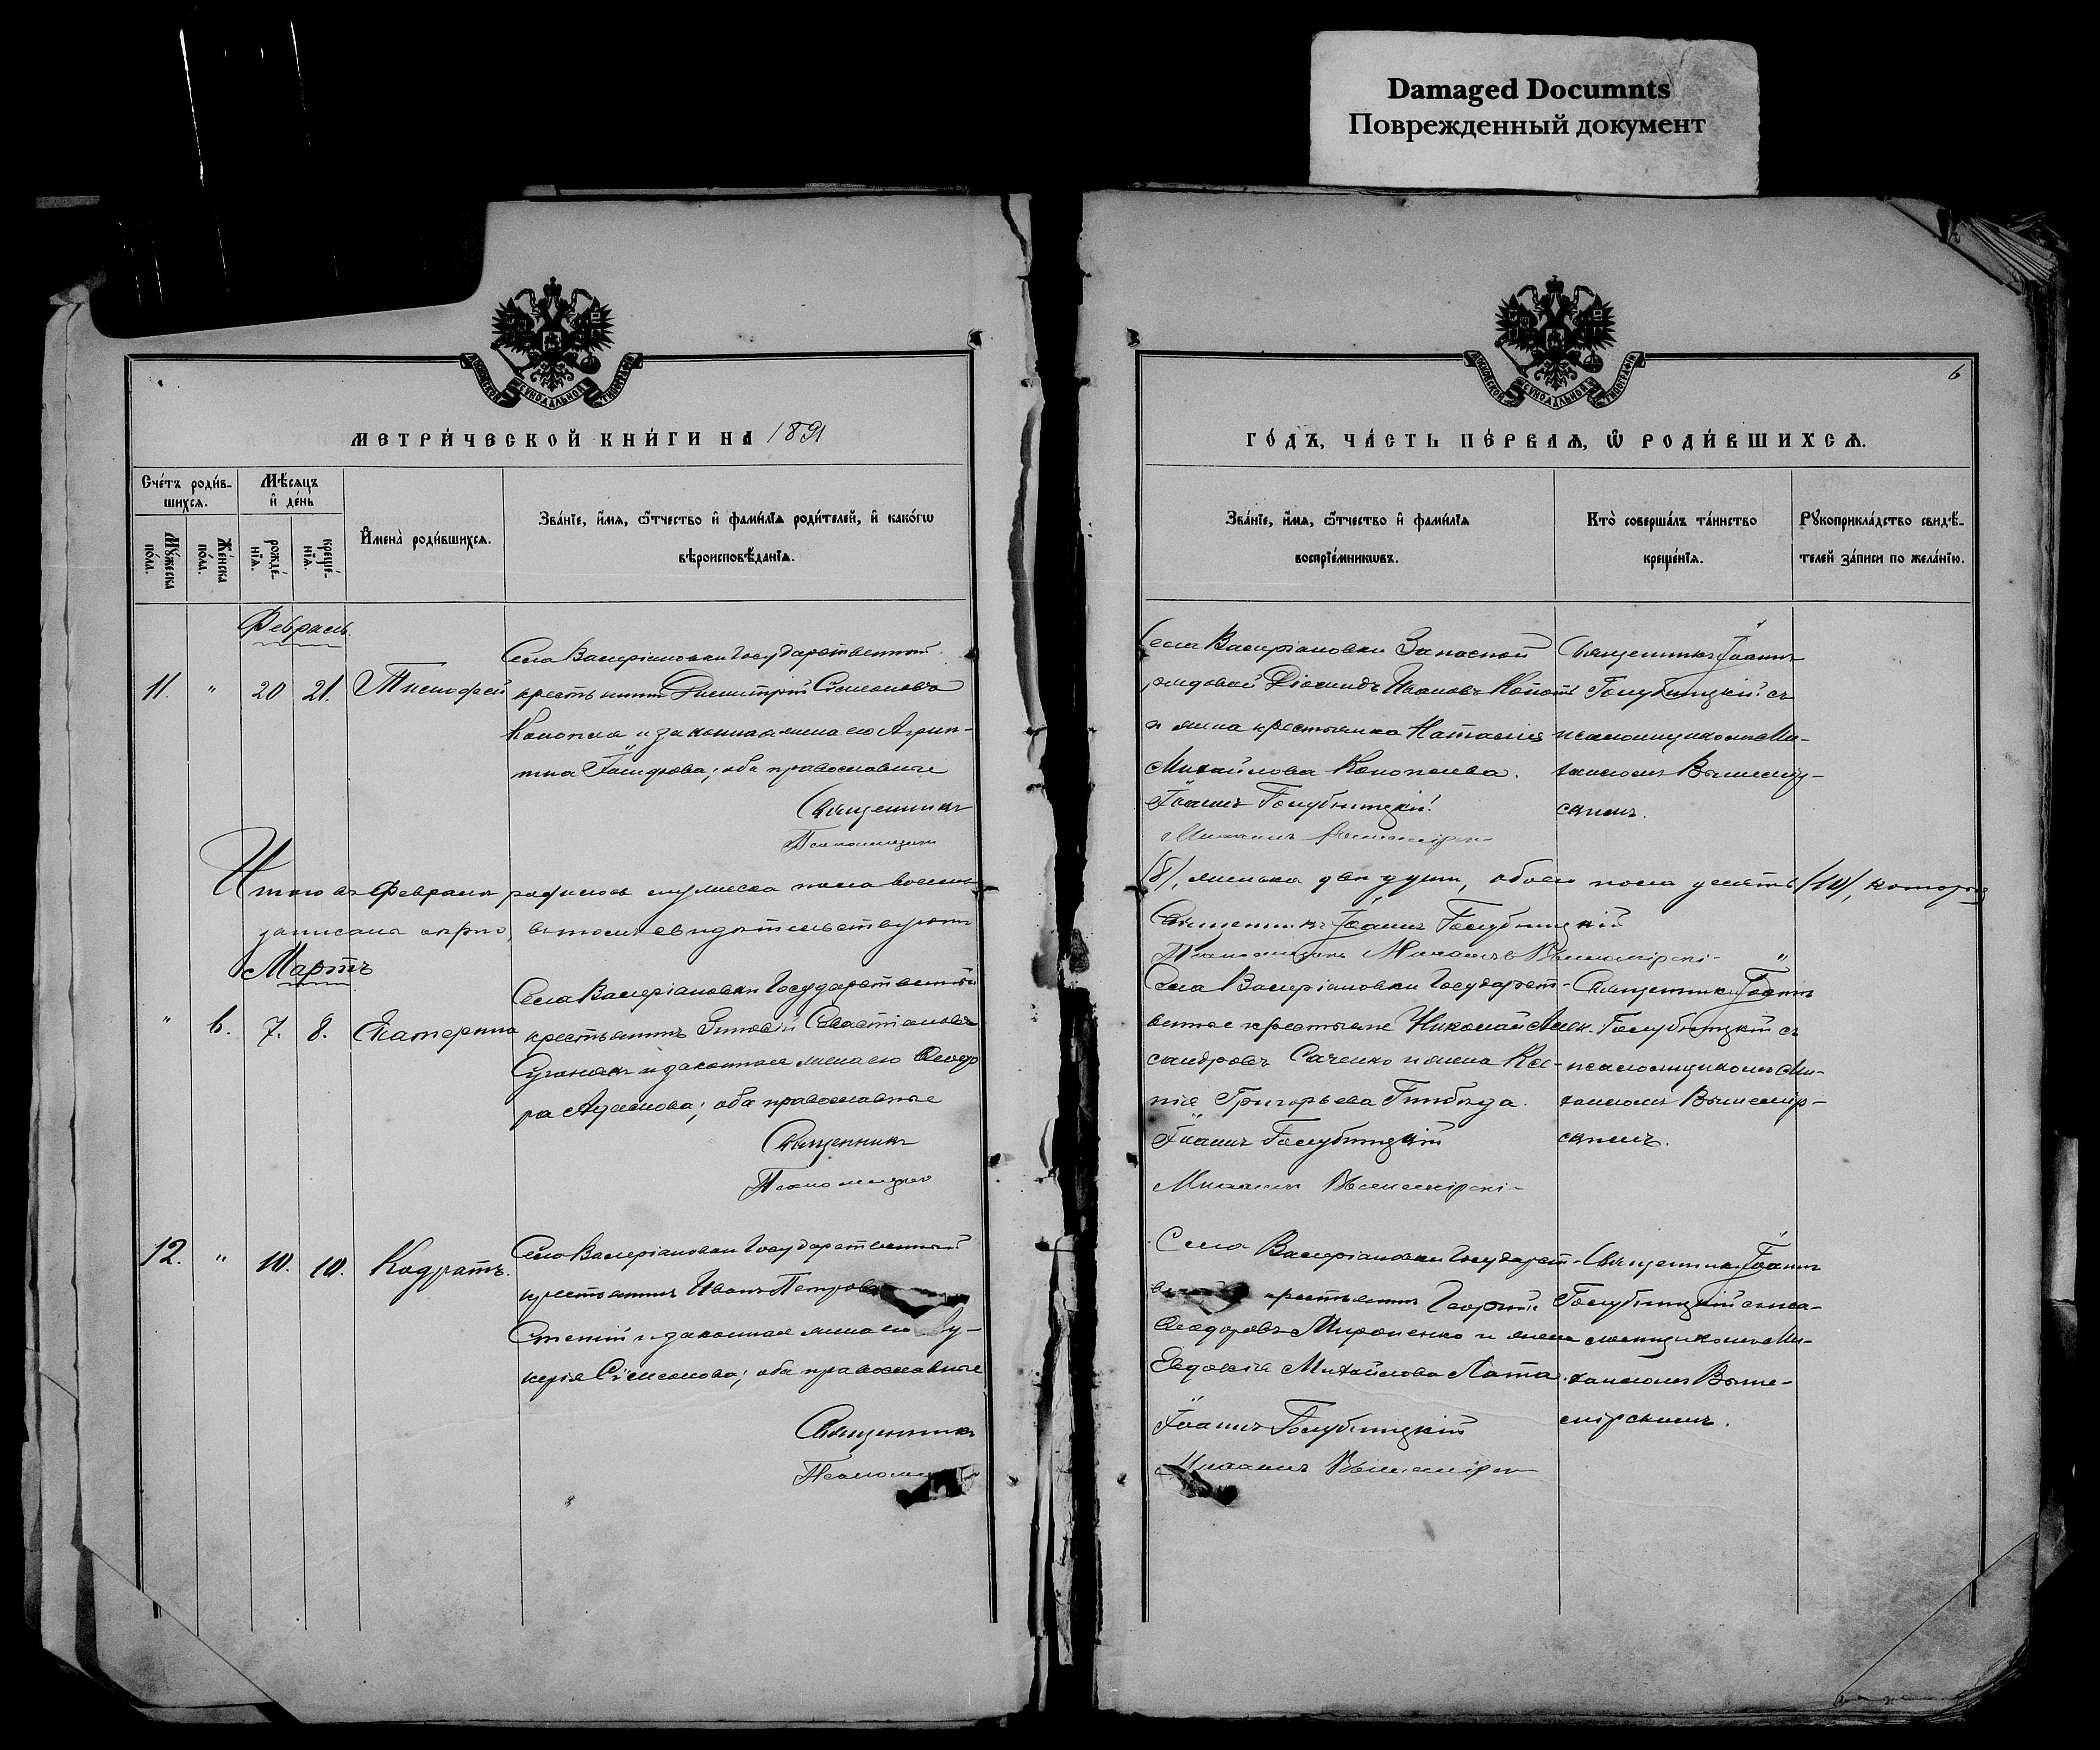 Damaged Documnts
Поврежденный документ
МОСКОВСКОЙ СУНОДАЛЬНОЙ ТИПОГРАФІИ
МЕТРИ́ЧЕСКОЙ КНИ́ГИ НА 1891
Сче́тъ роди́в-
шихсѧ.
Мѣ́сѧцъ
и҆ де́нь
Мꙋ́жеска по́ла.
Же́нска по́ла.
рожде́-
нїѧ.
креще́-
нїѧ.
И҆мена̀ роди́вшихсѧ.
Зва́нїе, и҆́мѧ, ѻ҆́тчество и҆ фами́лїѧ роди́телей, и҆ како́гѡ
вѣроисповѣ́данїѧ.
Февраль.
11. " 20 21. Тимофей
Села Валеріановки Государственный
крестьянинъ Димитрій Симеоновъ
Конопля и законная жена его Агрип-
пина; оба православные
Священникъ
Псаломщикъ
Итого въ Февралѣ родилось мужеска пола восемь
записаны вѣрно, въ томъ свидѣтельствуютъ
Мартъ
" 6. 7. 8. Екатерина
Села Валеріановки Государственный
крестьянинъ Зиновій Севастіановъ
и законная жена его Ѳеодо
ра Адамова; оба православные
Священникъ
Псаломщикъ
12. " 10. 10. Кодратъ.
Села Валеріановки Государственный
крестьянинъ Иванъ Петровъ
и законная жена его
керія Симеонова; оба православные
Священникъ
Псаломщикъ
МОСКОВСКОЙ СУНОДАЛЬНОЙ ТИПОГРАФІИ
6
ГО́ДЪ, ЧА́СТЬ ПЕ́РВАѦ, Ѡ҆ РОДИ́ВШИХСѦ.
Зва́нїе, и҆́мѧ, ѻ҆́тчество и҆ фами́лїѧ
воспрїе́мникѡвъ.
Кто̀ соверша́лъ та́инство
креще́нїѧ.
Рꙋкоприкла́дство свидѣ́-
телей за́писи по жела́нїю.
Села Валеріановки Запасной
рядовой Діомидъ Ивановъ
и жена крестьянка Наталія
Михайлова Коноплева.
Іоаннъ Голубницкій
Михаилъ Вышемірскій
Священникъ Іоаннъ
Голубницкій съ
псаломщикомъ Ми-
хаиломъ Вышемір-
скимъ.
(8), женска двѣ души, обоего пола десять (10), которые
Священникъ Іоаннъ Голубницкій
Псаломщикъ Михаилъ Вышемірскій
Села Валеріановки Государст-
венные крестьяне Николай Алек-
сандровъ Саченко и жена Ксе-
нія Григорьева
Іоаннъ Голубницкій
Михаилъ Вышемірскій
Священникъ Іоаннъ
Голубницкій съ
псаломщикомъ Ми-
хаиломъ Вышемір-
скимъ.
Села Валеріановки Государст-
крестьянинъ Георгій
Ѳеодоровъ Мироненко и жена
Евдокія Михайлова Лата.
Іоаннъ Голубницкій
Михаилъ Вышемірскій
Священникъ Іоаннъ
Голубницкій съ пса-
ломщикомъ Ми-
хаиломъ Выше-
мірскимъ.